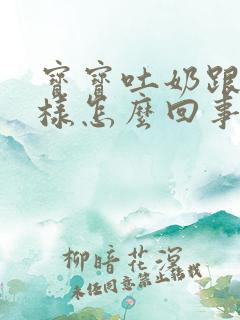 寶寶吐奶跟
樣怎麼回事
柳暗花溟
未經同意禁止轉載